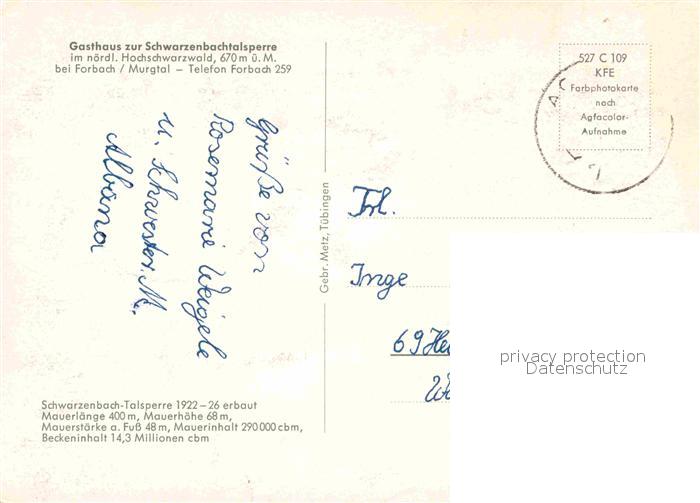 Gasthaus zur Schwarzenbachtalsperre
im nördl. Hochschwarzwald, 670 m ü. M.
bei Forbach / Murgtal – Telefon Forbach 259
Grüße von
Rosemarie Weigele
u. Schwester M.
Albana
Schwarzenbach-Talsperre 1922–26 erbaut
Mauerlänge 400 m, Mauerhöhe 68 m,
Mauerstärke a. Fuß 48 m, Mauerinhalt 290 000 cbm,
Beckeninhalt 14,3 Millionen cbm
Gebr. Metz, Tübingen
527 C 109
KFE
Farbphotokarte
nach
Agfacolor-
Aufnahme
Frl.
Inge
69 Hei
privacy protection
Datenschutz